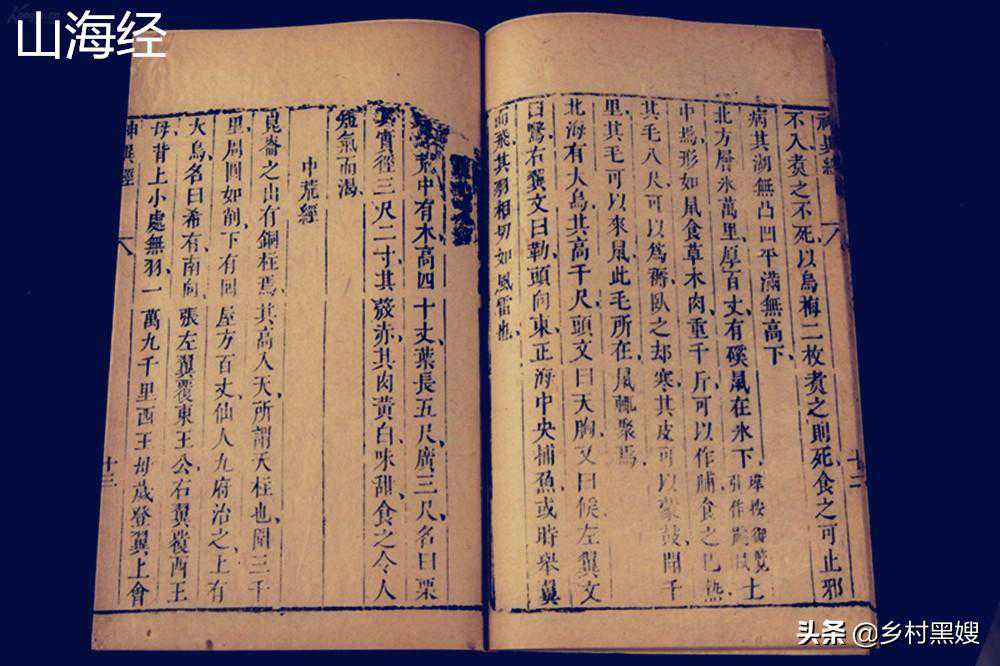 山海经
神異經
十二
不入煮之不死以烏梅二枚煮之則死食之可止邪
病其湖無凸凹平滿無高下
北方層氷萬里厚百丈有磎鼠在氷下 土
中焉形如鼠食草木肉重千斤可以作脯食之已熱
其毛八尺可以爲褥臥之却寒其皮可以蒙鼓聞千
里其毛可以來鼠此毛所在鼠輒聚焉
北海有大鳥其高千尺頭文曰天胸文曰候左翼文
曰鷖右翼文曰勒頭向東正海中央捕魚或時舉翼
而飛其羽相切如風雷也
荒中有木高四十丈葉長五尺廣三尺名曰栗
其實徑三尺二寸其殼赤其肉黃白味甜食之令人
短氣而渴
中荒經
崑崙之山有銅柱焉其高入天所謂天柱也圍三千
里周圓如削下有回屋方百丈仙人九府治之上有
大鳥名曰希有南向張左翼覆東王公右翼覆西王
母背上小處無羽一萬九千里西王母歲登翼上會
神異經
十三
头条 @乡村黑嫂